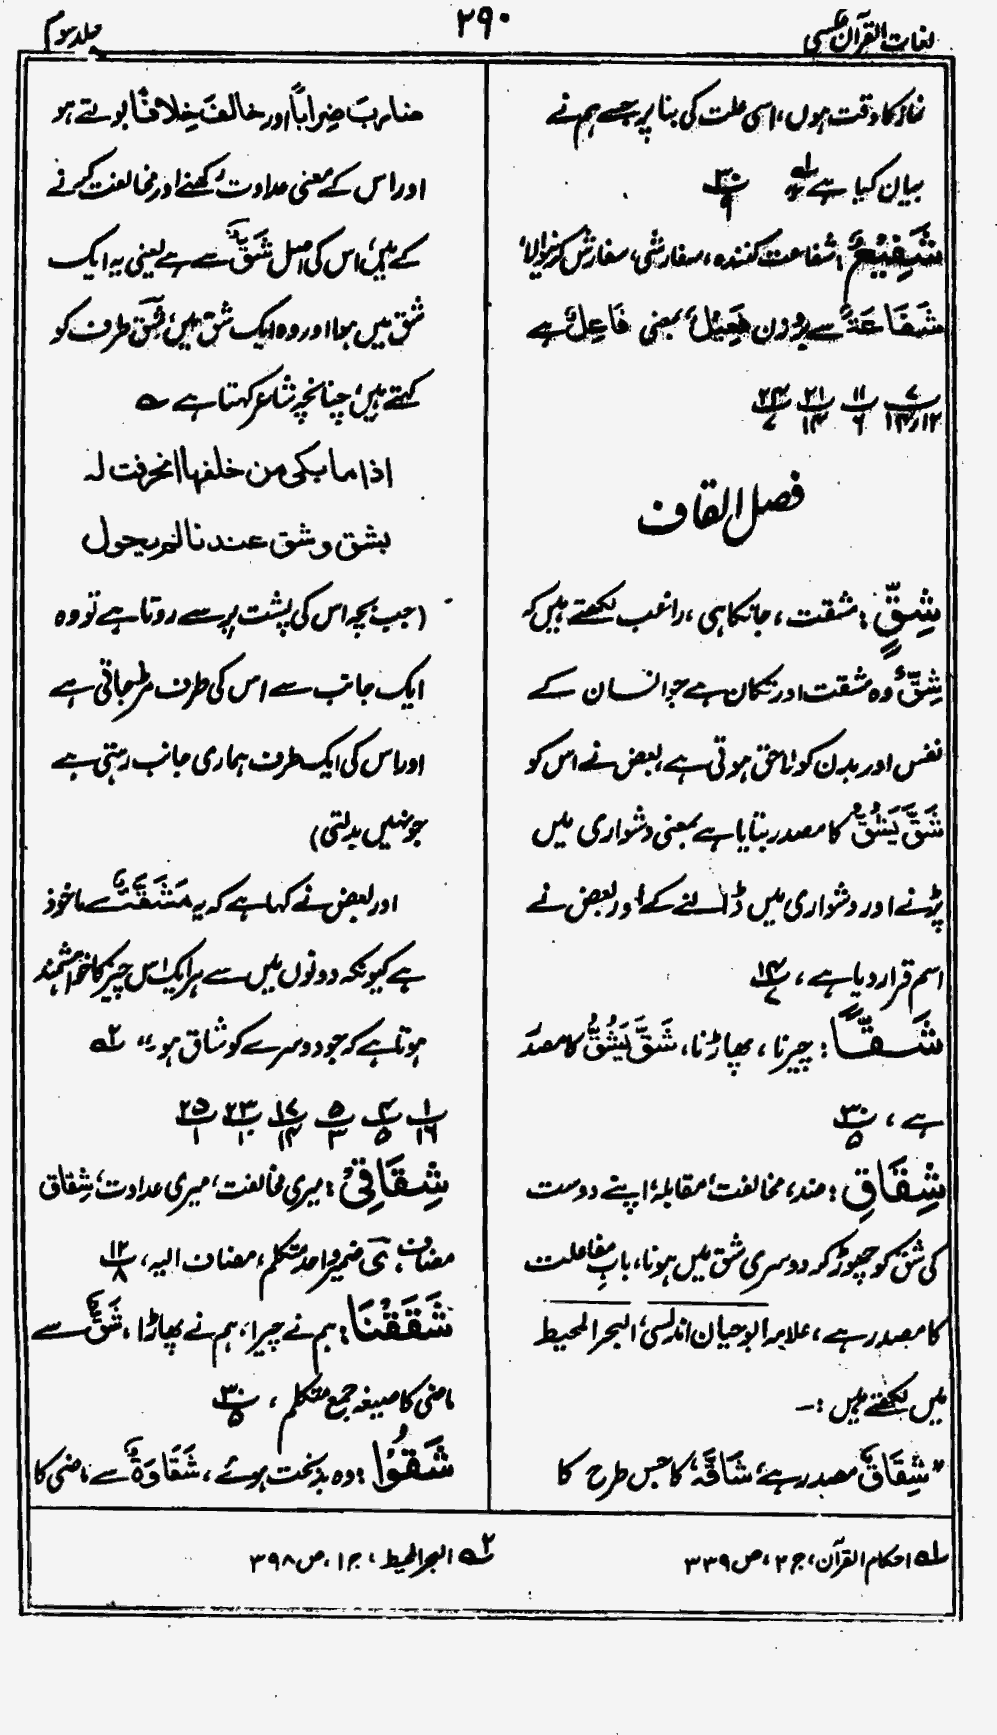 لغات القرآن عکسی
۲۹۰
جلد سوم
نماز کا وقت ہوں، اسی علت کی بنا پر جسے ہم نے
بیان کیا ہے لہ ۳۰/۹
شَفِیْعٌ: شفاعت کنندہ، سفارشی، سفارش کرنیوالا،
شَفَاعَۃٌ سے بروزن فَعِیْلٌ بمعنی فَاعِلٌ ہے
۷/۱۲ر۱۴ ۱۱/۶ ۲۱/۱۴ ۲۴/۷
فصل القاف
شِقِّ: مشقت، جانکاہی، راغب لکھتے ہیں کہ
شِقٌّ وہ مشقت اور تکان ہے جو انسان کے
نفس اور بدن کو لاحق ہوتی ہے، بعض نے اس کو
شَقَّ یَشُقُّ کا مصدر بتایا ہے بمعنی دشواری میں
پڑنے اور دشواری میں ڈالنے کے اور بعض نے
اسم قرار دیا ہے، ۱۴/۷
شَقًّا: چیرنا، پھاڑنا، شَقَّ یَشُقُّ کا مصدر
ہے، ۳۰/۵
شِقَاقٍ: ضد، مخالفت، مقابلہ، اپنے دوست
کی شق کو چھوڑ کر دوسری شق میں ہونا، بابِ مفاعلت
کا مصدر ہے، علامہ ابوحیان اندلسی، البحر المحیط
میں لکھتے ہیں:۔
”شِقَاقٌ مصدر ہے، شَاقَّہٗ کا جس طرح کا
ضاربَ ضِراباً اور خالفَ خِلافاً بولتے ہو
اور اس کے معنی عداوت رکھنے اور مخالفت کرنے
کے ہیں، اس کی اصل شَقٌّ سے ہے یعنی یہ ایک
شق میں ہوا اور وہ ایک شق میں، شق طرف کو
کہتے ہیں، چنانچہ شاعر کہتا ہے ؎
اذا ما بکی من خلفہا انحرفت لہ
بشق وشق عندنا لم یحول
(جب بچہ اس کی پشت پر سے روتا ہے تو وہ
ایک جانب سے اس کی طرف مڑ جاتی ہے
اور اس کی ایک طرف ہماری جانب رہتی ہے
جو نہیں بدلتی)
اور بعض نے کہا ہے کہ یہ مَشَقَّۃٌ سے ماخوذ
ہے کیونکہ دونوں میں سے ہر ایک اس چیز کا خواہشمند
ہوتا ہے کہ جو دوسرے کو شاق ہو“ ۲ہ
۱/۱۶ ۴/۵ ۵/۳ ۱۷/۱۴ ۲۳/۱۰ ۲۵/۱
شِقَاقِیْ: میری مخالفت، میری عداوت، شِقاق
مضاف، ی ضمیر واحد متکلم، مضاف الیہ، ۱۲/۸
شَقَقْنَا: ہم نے چیرا، ہم نے پھاڑا، شَقٌّ سے
ماضی کا صیغہ جمع متکلم، ۳۰/۵
شَقُوْا: وہ بدبخت ہوئے، شَقَاوَۃٌ سے ماضی کا
لہ احکام القرآن، ج ۲، ص ۳۳۹
۲ہ البحر المحیط، ج ۱، ص ۳۹۸